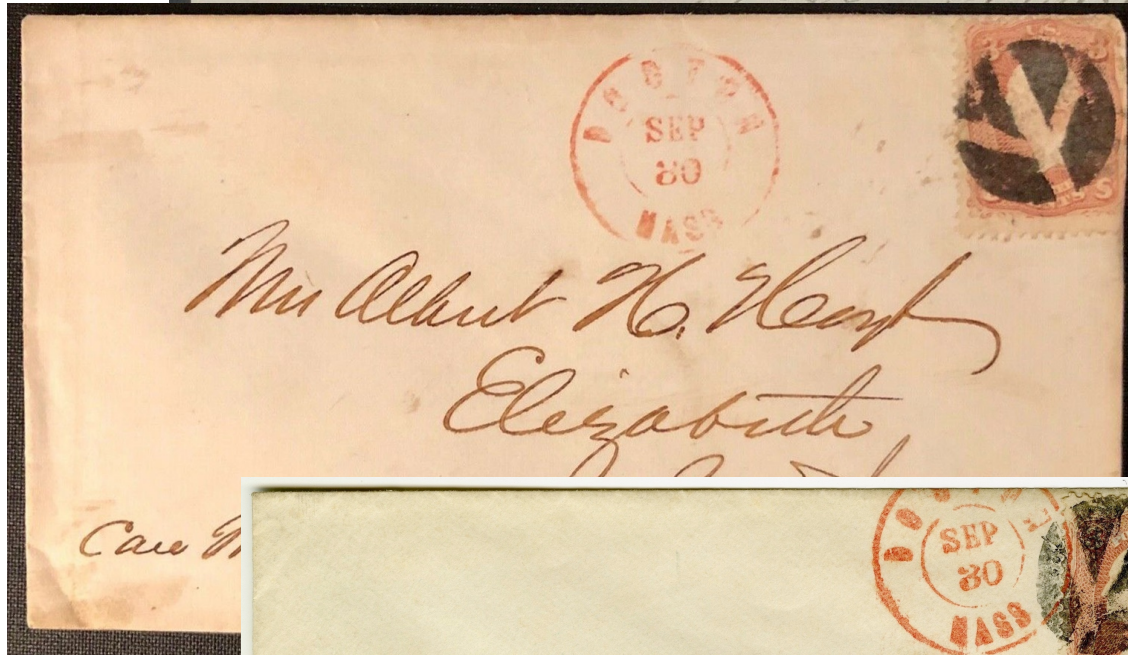 BOSTON
SEP
30
MASS
3 3
S
Mr Albert H.
Elizabeth
Care
BOSTON
SEP
30
MASS